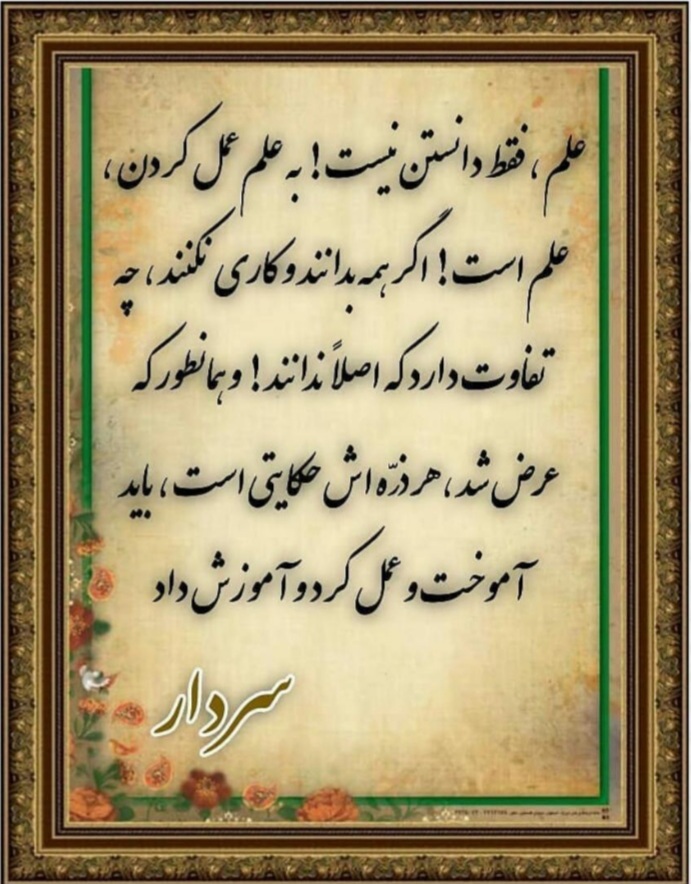 علم، فقط دانستن نیست! به علم عمل کردن،
علم است! اگر همه بدانند و کاری نکنند، چه
تفاوت دارد که اصلاً ندانند! و همانطور که
عرض شد، هر ذرّه اش حکایتی است، باید
آموخت و عمل کرد و آموزش داد
سردار